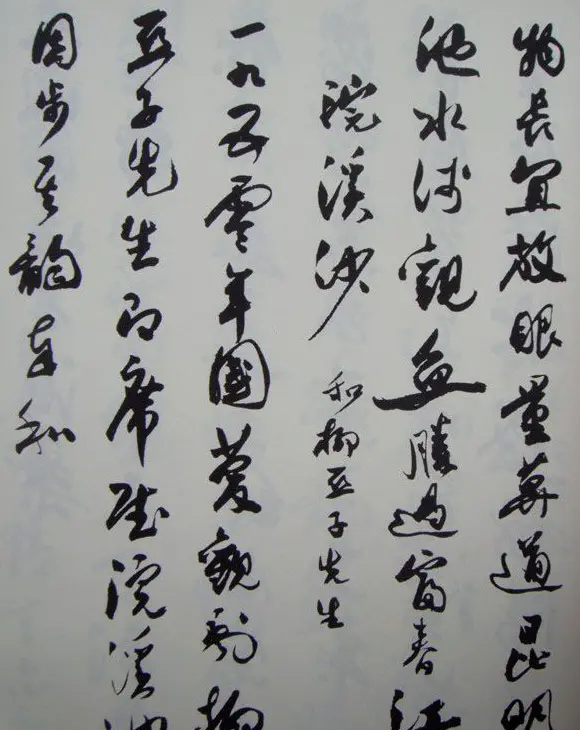 物長宜放眼量莫道昆明
池水浅觀魚勝過富春江
浣溪沙 和柳亞子先生
一九五零年國慶觀劇柳
亞子先生即席賦浣溪沙
因步其韻奉和